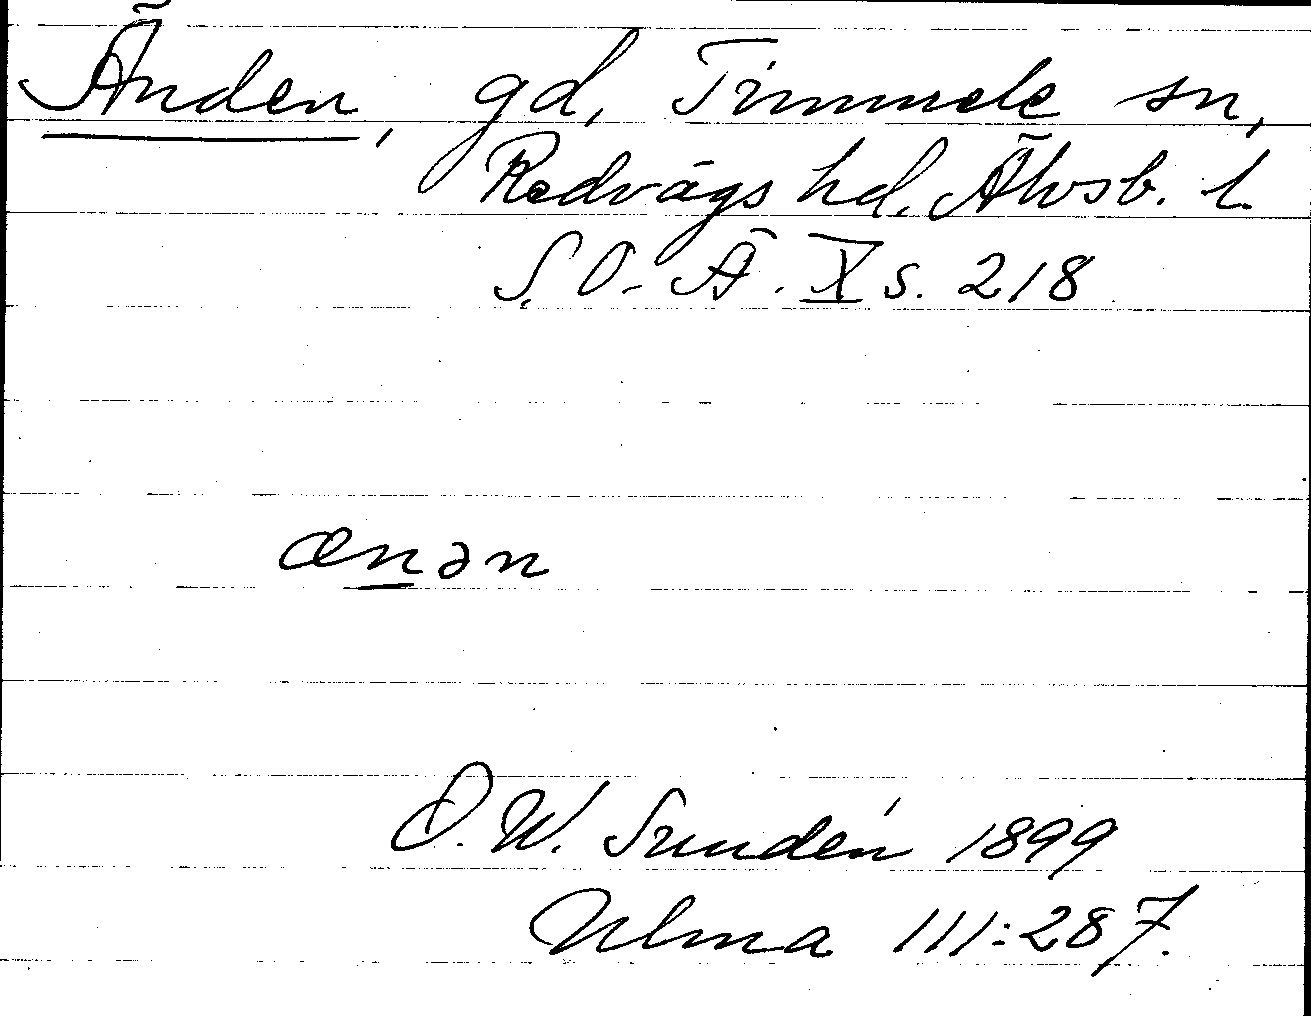 Änden, gd, Timmele sn,
Redvägs hd. Älvsb. l.
S. O. Ä. X s. 218
ænən
D. W. Sundén 1899
Ulma 111:287.